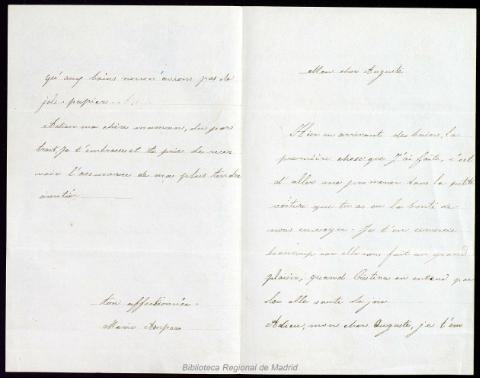 Mon cher Auguste
Hier en arrivant des bains, la
première chose que j'ai faite, c'est
d'aller me promener dans la petite
voiture que tu as eu la bonté de
nous envoyer. Je t'en remercie
beaucoup car elle nous fait un grand
plaisir, quand Cristina en entend par
ler elle saute de joie
Adieu, mon cher Auguste, je t'em
qu'aux bains nous n'avons pas de
joli papier
Adieu ma chère maman,
t'embrasse et te prie de rece
voir l'assurance de ma plus tendre
amitié
ton affectionnée
Marie Amparo
Biblioteca Regional de Madrid